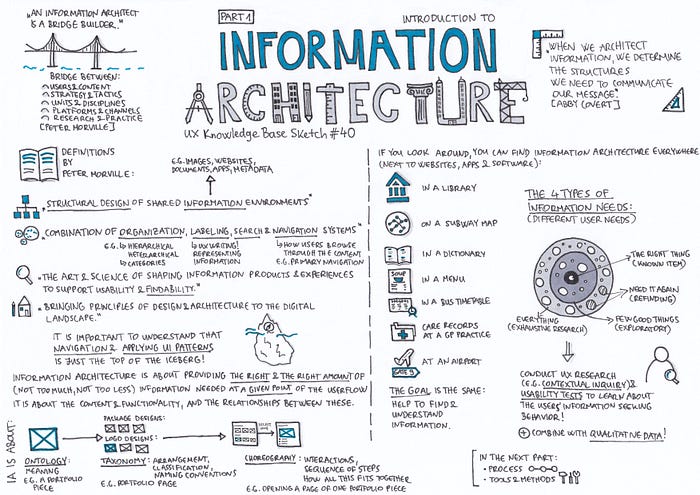 „AN INFORMATION ARCHITECT
IS A BRIDGE BUILDER."
BRIDGE BETWEEN:
USERS & CONTENT
STRATEGY & TACTICS
UNITS & DISCIPLINES
PLATFORMS & CHANNELS
RESEARCH & PRACTICE
[PETER MORVILLE]
PART 1
INTRODUCTION TO
INFORMATION
ARCHITECTURE
UX Knowledge Base Sketch #40
„WHEN WE ARCHITECT
INFORMATION, WE DETERMINE
THE STRUCTURES
WE NEED TO COMMUNICATE
OUR MESSAGE."
[ABBY COVERT]
DEFINITIONS
BY
PETER MORVILLE:
E.G. IMAGES, WEBSITES,
DOCUMENTS, APPS, METADATA
„STRUCTURAL DESIGN OF SHARED INFORMATION ENVIRONMENTS"
„COMBINATION OF ORGANIZATION, LABELING, SEARCH & NAVIGATION SYSTEMS"
E.G. HIERARCHICAL
HETERARCHICAL
CATEGORIES
UX WRITING!
REPRESENTING
INFORMATION
HOW USERS BROWSE
THROUGH THE CONTENT
E.G. PRIMARY NAVIGATION
„THE ART & SCIENCE OF SHAPING INFORMATION PRODUCTS & EXPERIENCES
TO SUPPORT USABILITY & FINDABILITY."
„BRINGING PRINCIPLES OF DESIGN & ARCHITECTURE TO THE DIGITAL
LANDSCAPE."
IT IS IMPORTANT TO UNDERSTAND THAT
NAVIGATION & APPLYING UI PATTERNS
IS JUST THE TOP OF THE ICEBERG!
INFORMATION ARCHITECTURE IS ABOUT PROVIDING THE RIGHT & THE RIGHT AMOUNT OF
(NOT TOO MUCH, NOT TOO LESS) INFORMATION NEEDED AT A GIVEN POINT OF THE USERFLOW
IT IS ABOUT THE CONTENT & FUNCTIONALITY, AND THE RELATIONSHIPS BETWEEN THESE.
IA IS ABOUT:
ONTOLOGY:
MEANING
E.G. A PORTFOLIO
PIECE
PACKAGE DESIGNS:
LOGO DESIGNS:
TAXONOMY: ARRANGEMENT,
CLASSIFICATION,
NAMING CONVENTIONS
E.G. PORTFOLIO PAGE
CHOREOGRAPHY: INTERACTIONS,
SEQUENCE OF STEPS
HOW ALL THIS FITS TOGETHER
E.G. OPENING A PAGE OF ONE PORTFOLIO PIECE
IF YOU LOOK AROUND, YOU CAN FIND INFORMATION ARCHITECTURE EVERYWHERE
(NEXT TO WEBSITES, APPS & SOFTWARE):
IN A LIBRARY
ON A SUBWAY MAP
IN A DICTIONARY
SOUP
IN A MENU
IN A BUS TIMETABLE
CARE RECORDS
AT A GP PRACTICE
GATE 9
AT AN AIRPORT
THE GOAL IS THE SAME:
HELP TO FIND &
UNDERSTAND
INFORMATION.
THE 4 TYPES OF
INFORMATION NEEDS:
(DIFFERENT USER NEEDS)
THE RIGHT THING
(KNOWN ITEM)
NEED IT AGAIN
(REFINDING)
FEW GOOD THINGS
(EXPLORATORY)
EVERYTHING
(EXHAUSTIVE RESEARCH)
CONDUCT UX RESEARCH
(E.G. CONTEXTUAL INQUIRY) &
USABILITY TESTS TO LEARN ABOUT
THE USERS' INFORMATION SEEKING
BEHAVIOR!
+ COMBINE WITH QUALITATIVE DATA!
IN THE NEXT PART:
• PROCESS
• TOOLS & METHODS